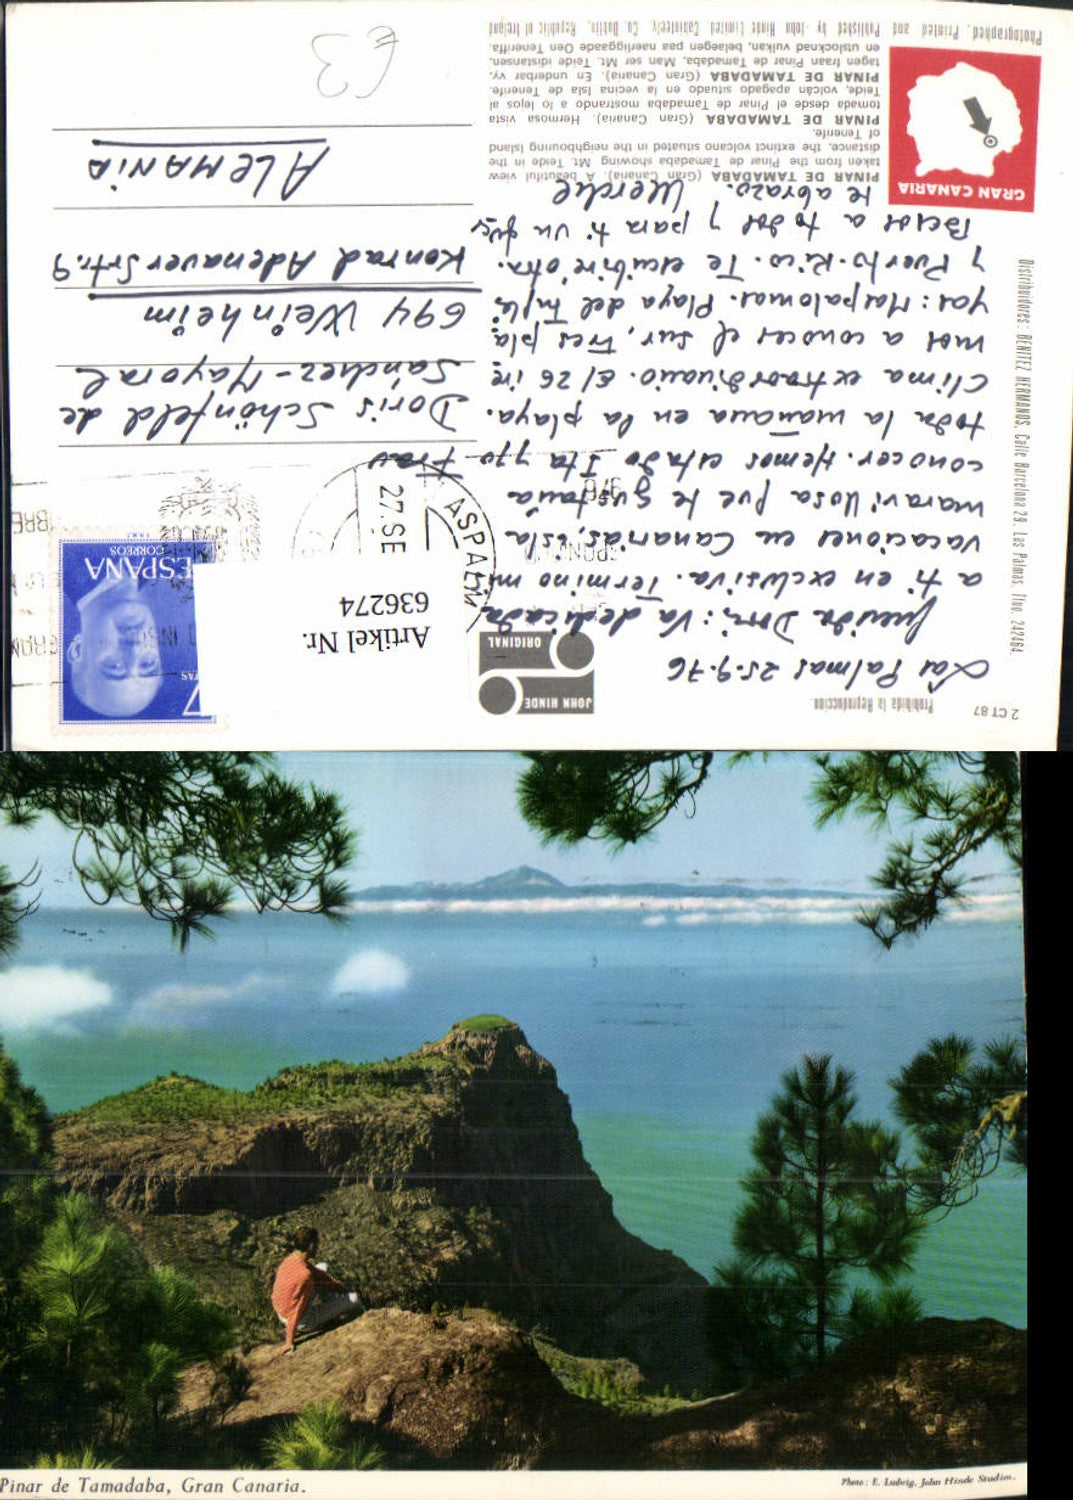 2 CT 87
Prohibida la Reproduccion
JOHN HINDE
ORIGINAL
Artikel Nr.
636274
7
PTAS
ESPAÑA
CORREOS
27 SE
Las Palmas 25-9-76
Querida Dori: Va dedicada
a ti en exclusiva. Termino mi
vacaciones en Canarias, isla
maravillosa que te gustaria
conocer. Hemos estado
toda la mañana en la playa.
Clima extraordinario. El 26 ire
mos a conocer el sur, tres pla
yas: Maspalomas. Playa del Inglés
y Puerto-Rico. Te escribire otra.
Besos a todos y para ti un
te abrazo. Merche
Frau
Doris Schönfeld de
Sánchez-Mayoral
694 Weinheim
Konrad Adenauer Str. 9
ALEMANIA
€3
Distribuidores: BENITEZ HERMANOS. Calle Barcelona 29. Las Palmas. Tfno. 242464.
GRAN CANARIA
PINAR DE TAMADABA (Gran Canaria). A beautiful view
taken from the Pinar de Tamadaba showing Mt. Teide in the
distance, the extinct volcano situated in the neighbouring island
of Tenerife.
PINAR DE TAMADABA (Gran Canaria). Hermosa vista
tomada desde el Pinar de Tamadaba mostrando a lo lejos al
Teide, volcán apagado situado en la vecina Isla de Tenerife.
PINAR DE TAMADABA (Gran Canaria). En underbar vy,
tagen fraan Pinar de Tamadaba, Man ser Mt. Teide idistansen,
en utslocknad vulkan, belaegen paa naerliggaade Oen Teneriffa.
Photographed, Printed and Published by John Hinde Limited, Cabinteely, Co. Dublin, Republic of Ireland
Pinar de Tamadaba, Gran Canaria.
Photo: E. Ludwig, John Hinde Studios.